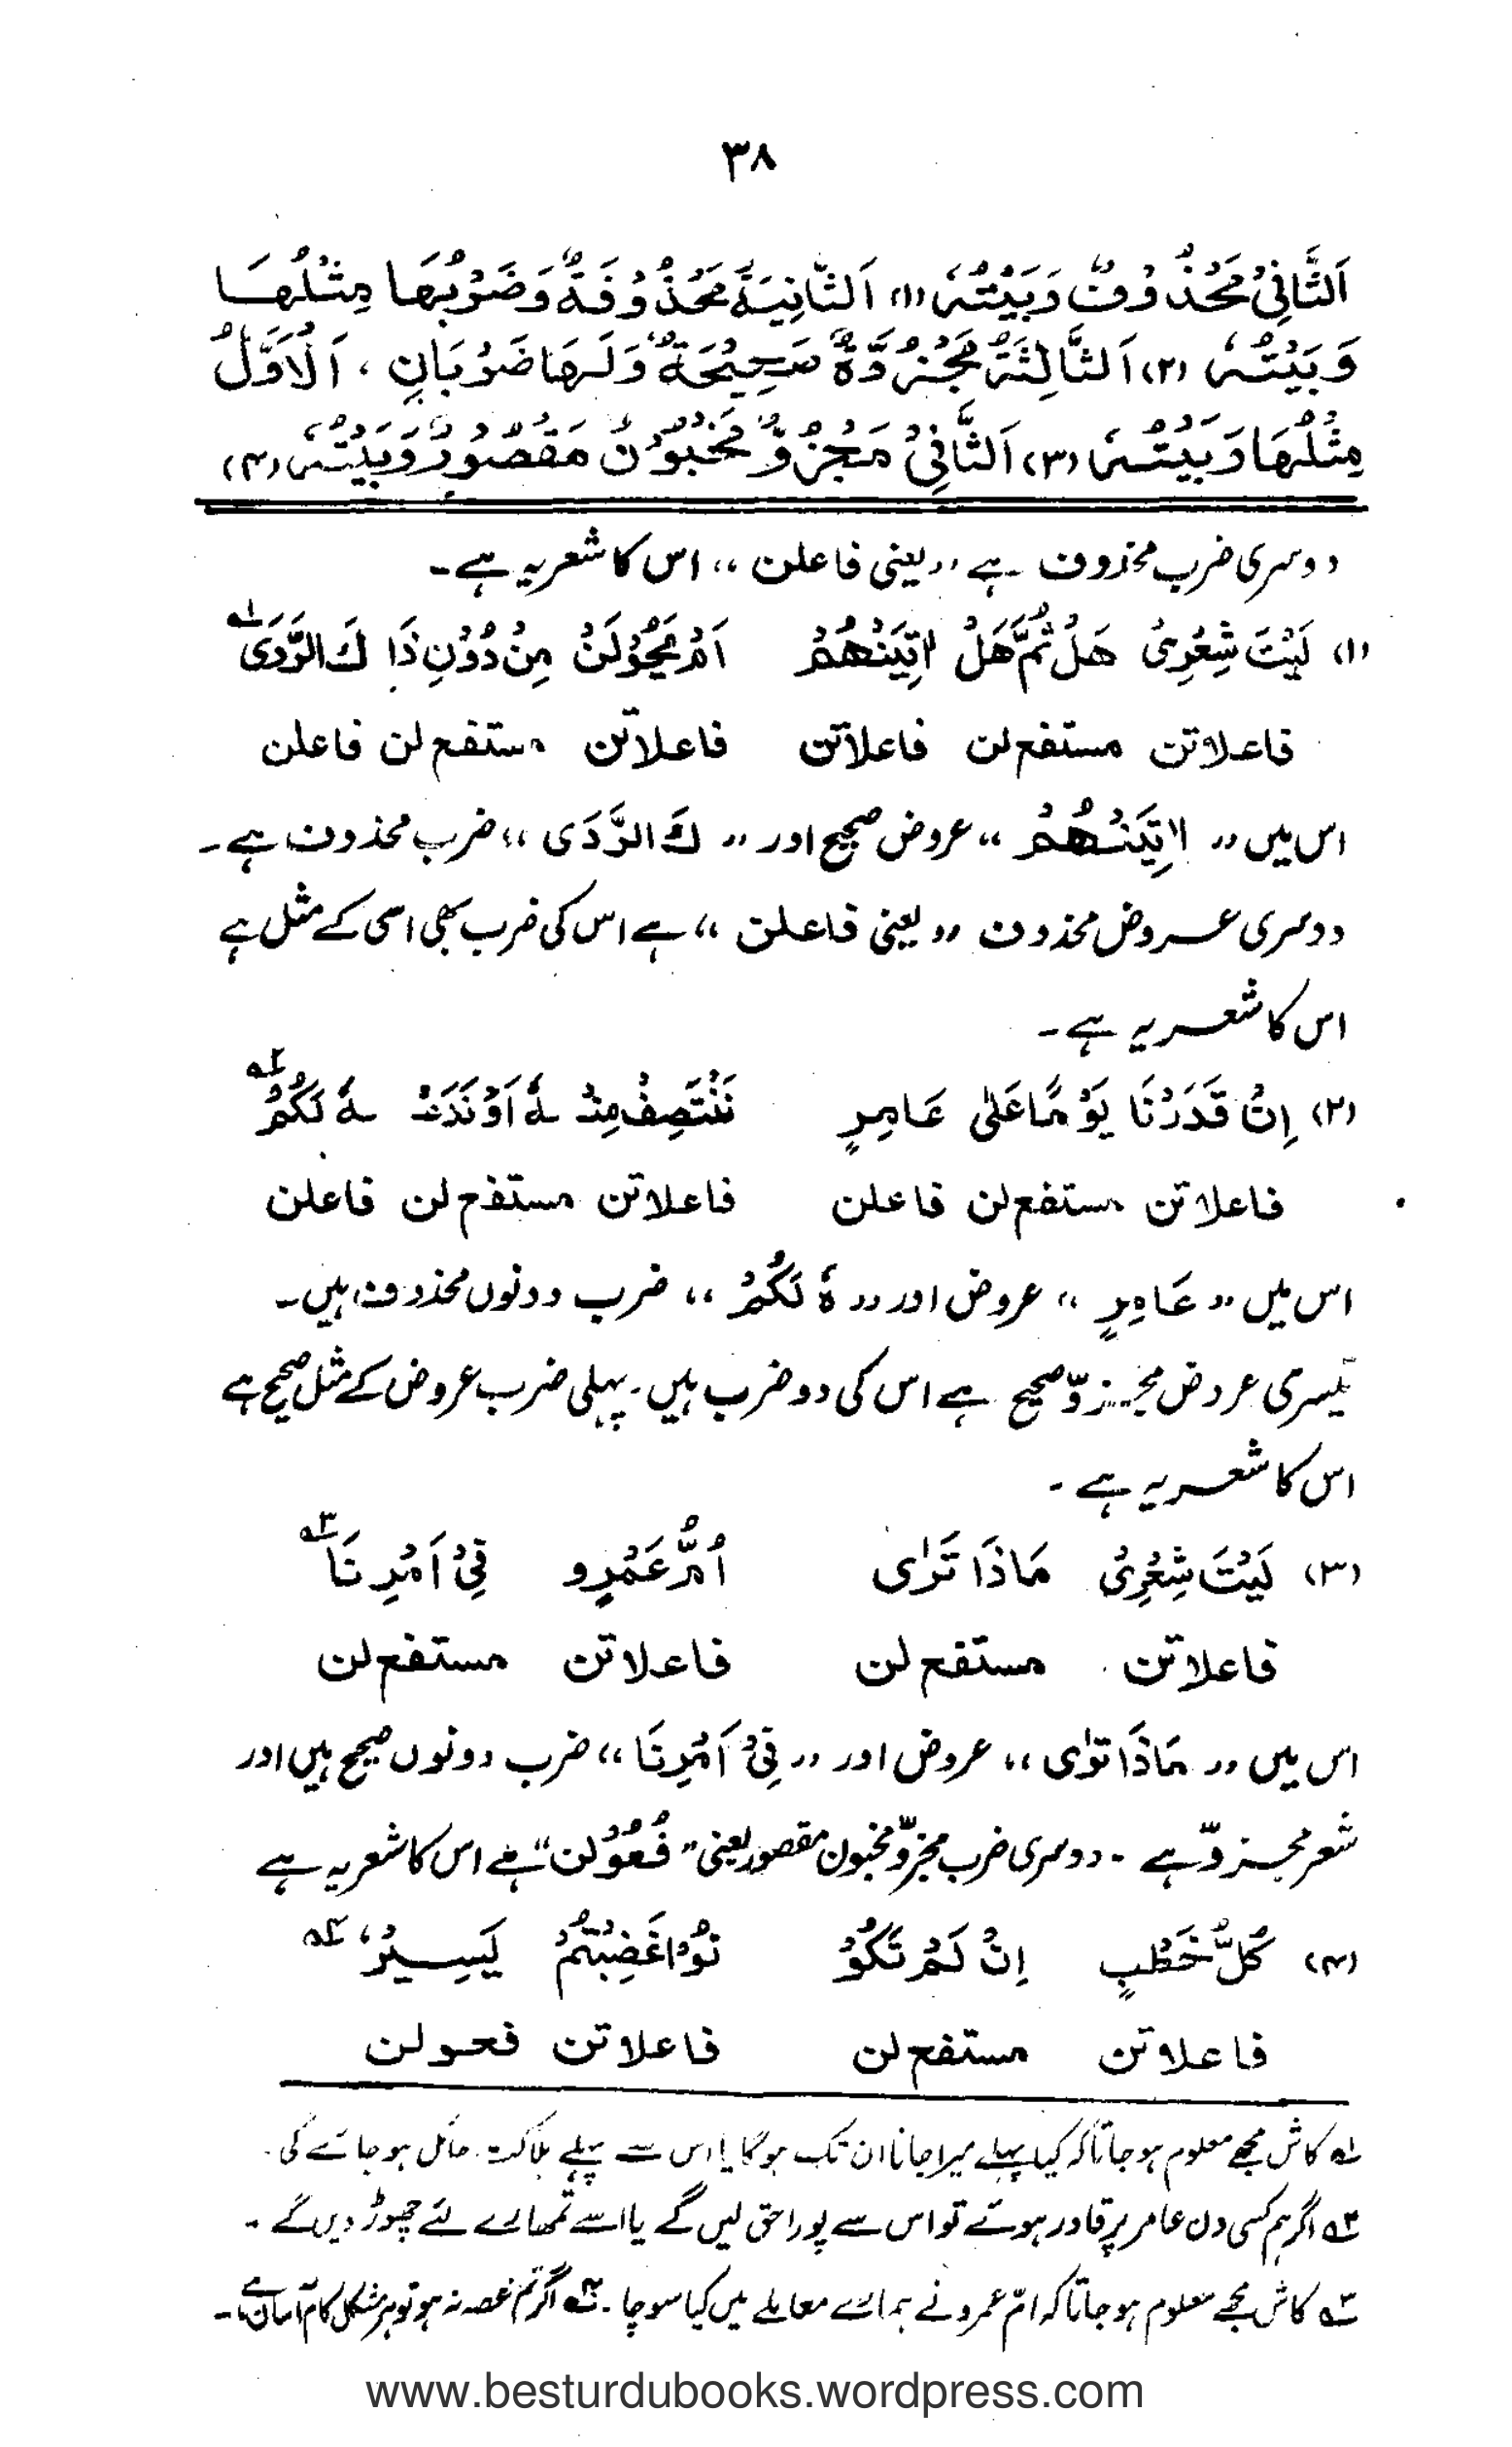 ۳۸
اَلثَّانِیْ مَحْذُوْفٌ وَبَیْتُہٗ (۱) اَلثَّانِیَۃُ مَحْذُوْفَۃٌ وَضَرْبُهَا مِثْلُهَا
وَبَیْتُہٗ (۲) اَلثَّالِثَۃُ مَجْزُوَّۃٌ صَحِیْحَۃٌ وَلَهَا ضَرْبَانِ ، اَلْاَوَّلُ
مِثْلُهَا وَبَیْتُہٗ (۳) اَلثَّانِیْ مَجْزُوٌّ مَخْبُوْنٌ مَقْصُوْرٌ وَبَیْتُہٗ (۴)
دوسری ضرب محذوف ہے ،، یعنی فاعلن ،، اس کا شعر یہ ہے۔
(۱) لَیْتَ شِعْرِیْ هَلْ ثُمَّ هَلْ اٰتِیَنْهُمْ اَمْ یَحُوْلَنْ مِنْ دُوْنِ ذَا كَ الرَّدَی ۱؎
فاعلاتن مستفع لن فاعلاتن فاعلاتن مستفع لن فاعلن
اس میں ،، اٰتِیَنْهُمْ ،، عروض صحیح اور ،، كَ الرَّدَی ،، ضرب محذوف ہے۔
دوسری عروض محذوف ،، یعنی فاعلن ،، ہے اس کی ضرب بھی اسی کے مثل ہے
اس کا شعر یہ ہے۔
(۲) اِنْ قَدَرْنَا یَوْمًا عَلٰی عَامِرٍ نَنْتَصِفْ مِنْہُ اَوْ نَدَعْہُ لَكُمْ ۲؎
فاعلاتن مستفع لن فاعلن فاعلاتن مستفع لن فاعلن
اس میں ،، عَامِرٍ ،، عروض اور ،، ہٗ لَكُمْ ،، ضرب دونوں محذوف ہیں۔
تیسری عروض مجزوّ صحیح ہے اس کی دو ضرب ہیں۔ پہلی ضرب عروض کے مثل صحیح ہے
اس کا شعر یہ ہے۔
(۳) لَیْتَ شِعْرِیْ مَاذَا تَرٰی اُمُّ عَمْرٍو فِیْ اَمْرِنَا ۳؎
فاعلاتن مستفع لن فاعلاتن مستفع لن
اس میں ،، مَاذَا تَرٰی ،، عروض اور ،، فِیْ اَمْرِنَا ،، ضرب دونوں صحیح ہیں اور
شعر مجزوّ ہے ۔ دوسری ضرب مجزوّ مخبون مقصور یعنی "فُعُوْلن" ہے اس کا شعر یہ ہے
(۴) كُلُّ خَطْبٍ اِنْ لَمْ تَكُوْ نُوْا غَضِبْتُمْ یَسِیْرُ ۴؎
فاعلاتن مستفع لن فاعلاتن فعولن
۱؎ کاش مجھے معلوم ہو جاتا کہ کیا پہلے میرا جانا ان تک ہوگا یا اس سے پہلے ہلاکت حائل ہو جائے گی۔
۲؎ اگر ہم کسی دن عامر پر قادر ہوتے تو اس سے پورا حق لیں گے یا اسے تمھارے لئے چھوڑ دیں گے۔
۳؎ کاش مجھے معلوم ہو جاتا کہ امّ عمرو نے ہمارے معاملے میں کیا سوچا۔ ۴؎ اگر تم غصہ نہ ہو تو ہر مشکل کام آسان ہے۔
www.besturdubooks.wordpress.com